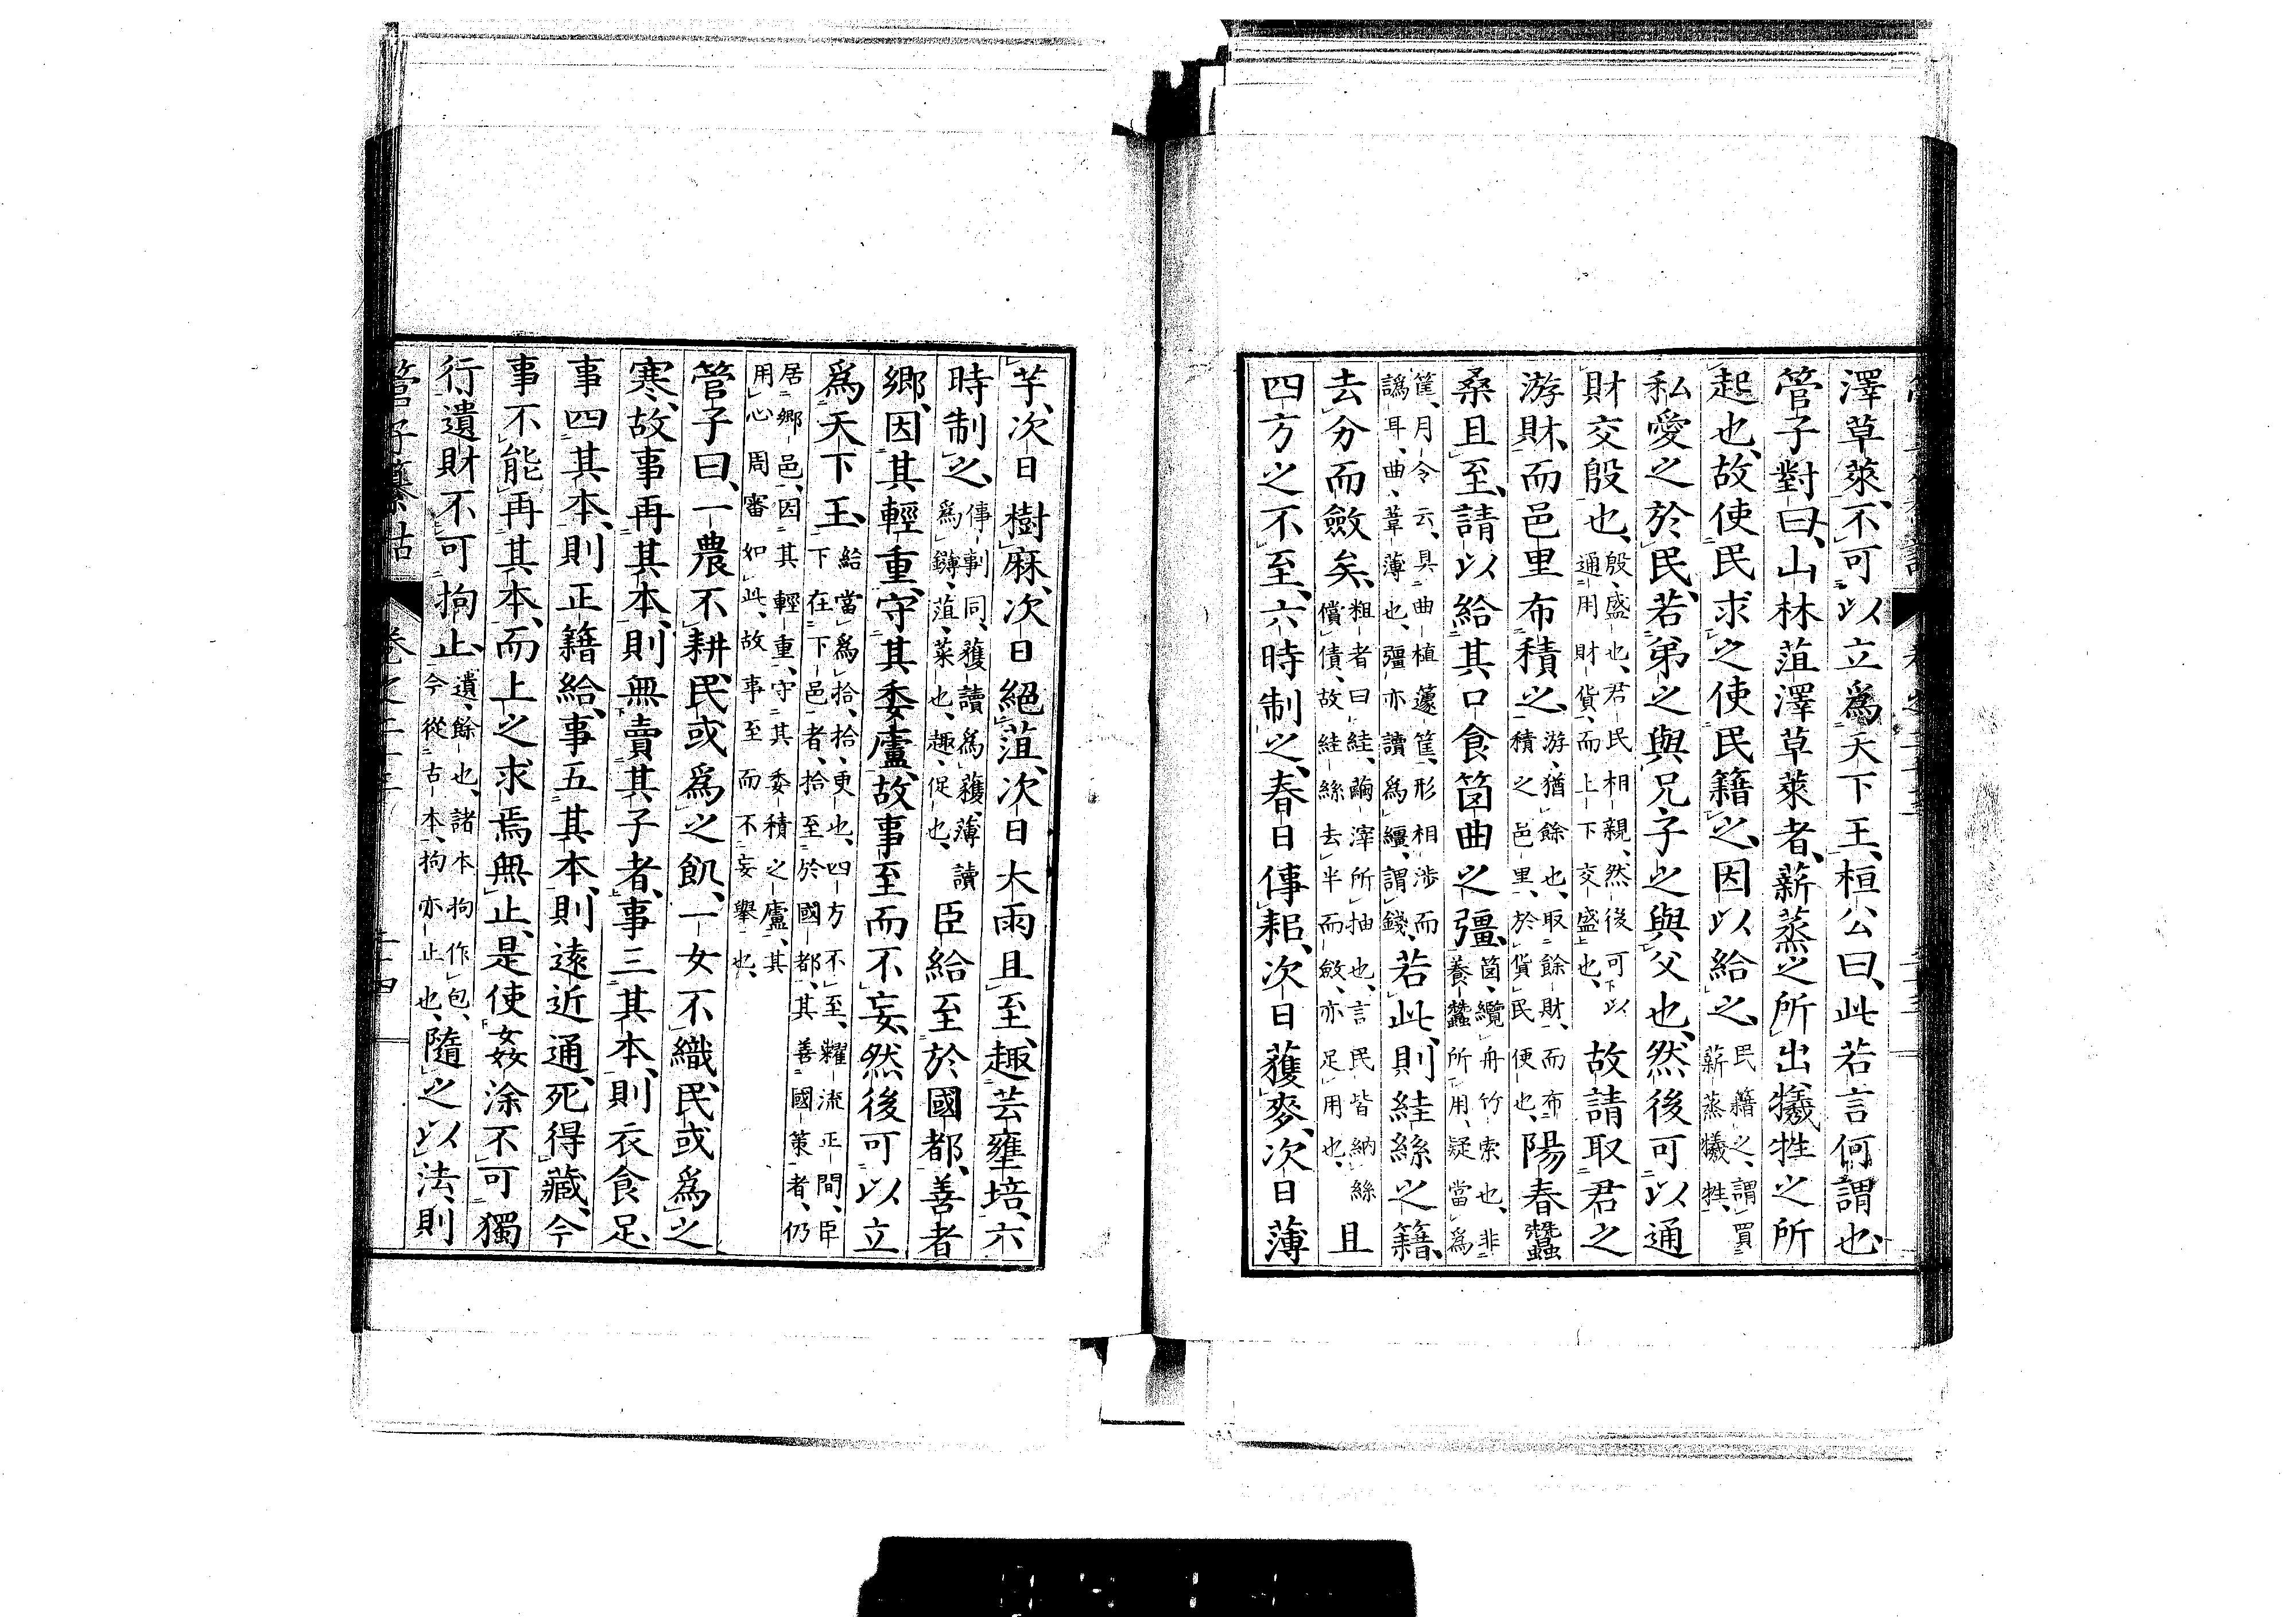 澤草萊、不可以立爲天下王、桓公曰、此若言何謂也、
管子對曰、山林菹澤草萊者、薪蒸之所出、犧牲之所
起也、故使民求之、使民籍之、因以給之、民籍之、謂買薪蒸犧牲、
私愛之於民、若弟之與兄、子之與父也、然後可以通
財交殷也、殷、盛也、君民相親、然後可以通用財貨、而上下交盛也、故請取君之
游財、而邑里布積之、游、猶餘也、取餘財、而布積之邑里、於貨民便也、陽春蠶
桑且至、請以給其口食筥曲之彊、筥、纜舟竹索也、非養蠶所用、疑當爲
筐、月令云、具曲植籧筐、形相涉而譌耳、曲、葦薄也、彊亦讀爲繦、謂錢、若此、則絓絲之籍、
去分而斂矣、粗者曰絓、繭滓所抽也、言民皆納絲償債、故絓絲去半而斂、亦足用也、且
四方之不至、六時制之、春日倳耜、次日穫麥、次日薄
芋、次日樹麻、次日絕菹、次日大雨且至、趣芸壅培、六
時制之、倳剚同、穫讀爲穫、薄讀爲鏄、菹、菜也、趣、促也、臣給至於國都、善者
鄉、因其輕重、守其委廬、故事至而不妄、然後可以立
爲天下王、給當爲拾、拾、更也、四方不至、糴流正間、臣下在下邑者、拾至於國都、其善國策者、仍
居鄉邑、因其輕重、守其委積之廬、其用心周審如此、故事至而不妄舉也、
管子曰、一農不耕、民或爲之飢、一女不織、民或爲之
寒、故事再其本、則無賣其子者、事三其本、則衣食足、
事四其本、則正籍給、事五其本、則遠近通、死得藏、今
事不能再其本、而上之求焉無止、是使姦涂不可獨
行、遺財不可拘止、遺、餘也、諸本拘作包、今從古本、拘亦止也、隨之以法、則
管子纂詁 卷之二十三 二十四